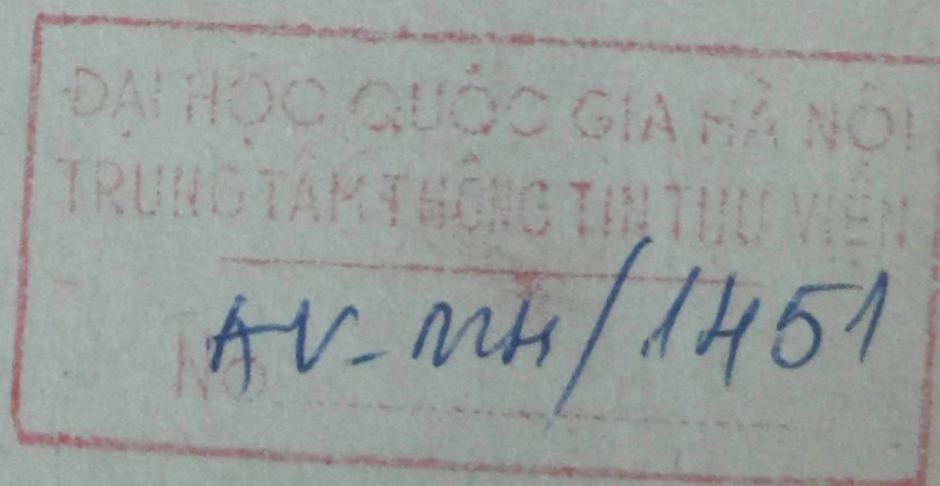 ĐẠI HỌC QUỐC GIA HÀ NỘI
TRUNG TÂM THÔNG TIN THƯ VIỆN
No AV-M4/1451